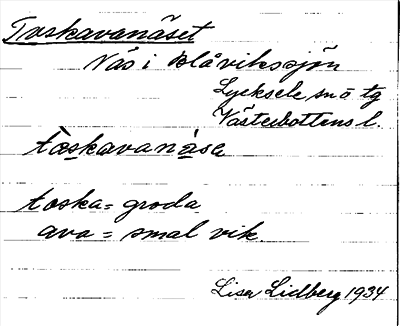 Tuskavanäset
Näs i Blåvikssjön
Lycksele sn o tg
Västerbottens l.
tæskavanàse
toska = groda
ava = smal vik
Lisa Lidberg 1934